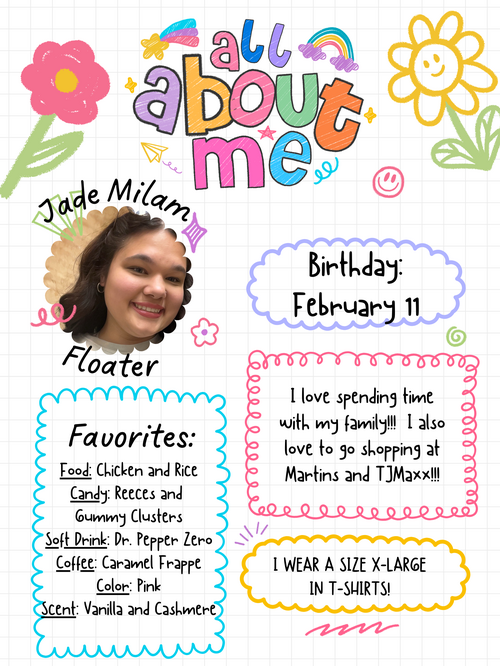 all
about
me
Jade Milam
Floater
Birthday:
February 11
I love spending time
with my family!!! I also
love to go shopping at
Martins and TJMaxx!!!
Favorites:
Food: Chicken and Rice
Candy: Reeces and
Gummy Clusters
Soft Drink: Dr. Pepper Zero
Coffee: Caramel Frappe
Color: Pink
Scent: Vanilla and Cashmere
I WEAR A SIZE X-LARGE
IN T-SHIRTS!